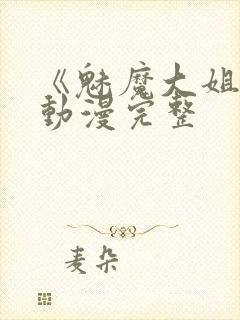 《魅魔大姐
動漫完整
麦朵